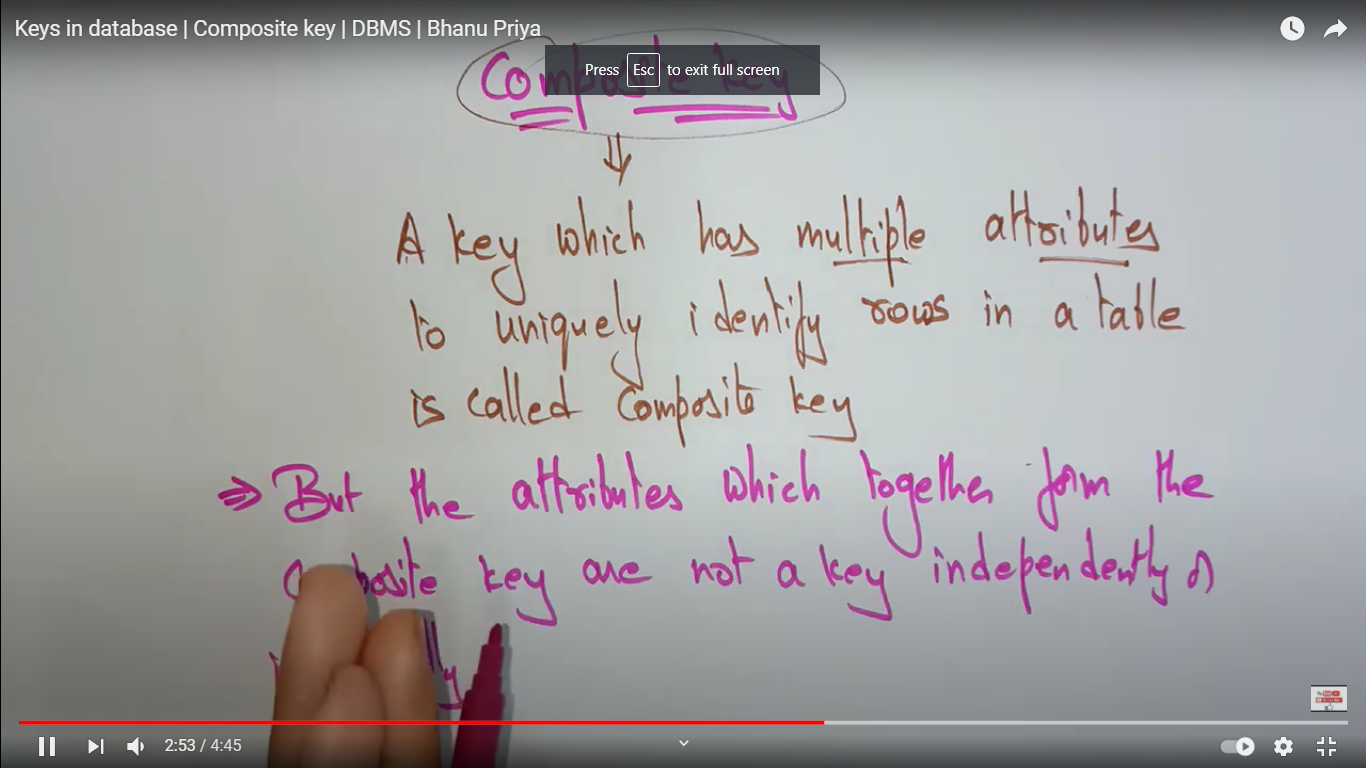 Keys in database | Composite key | DBMS | Bhanu Priya
Press Esc to exit full screen
Composite key
A key which has multiple attributes
to uniquely identify rows in a table
is called Composite key
⇒ But the attributes which together form the
Composite key are not a key independently or
2:53 / 4:45